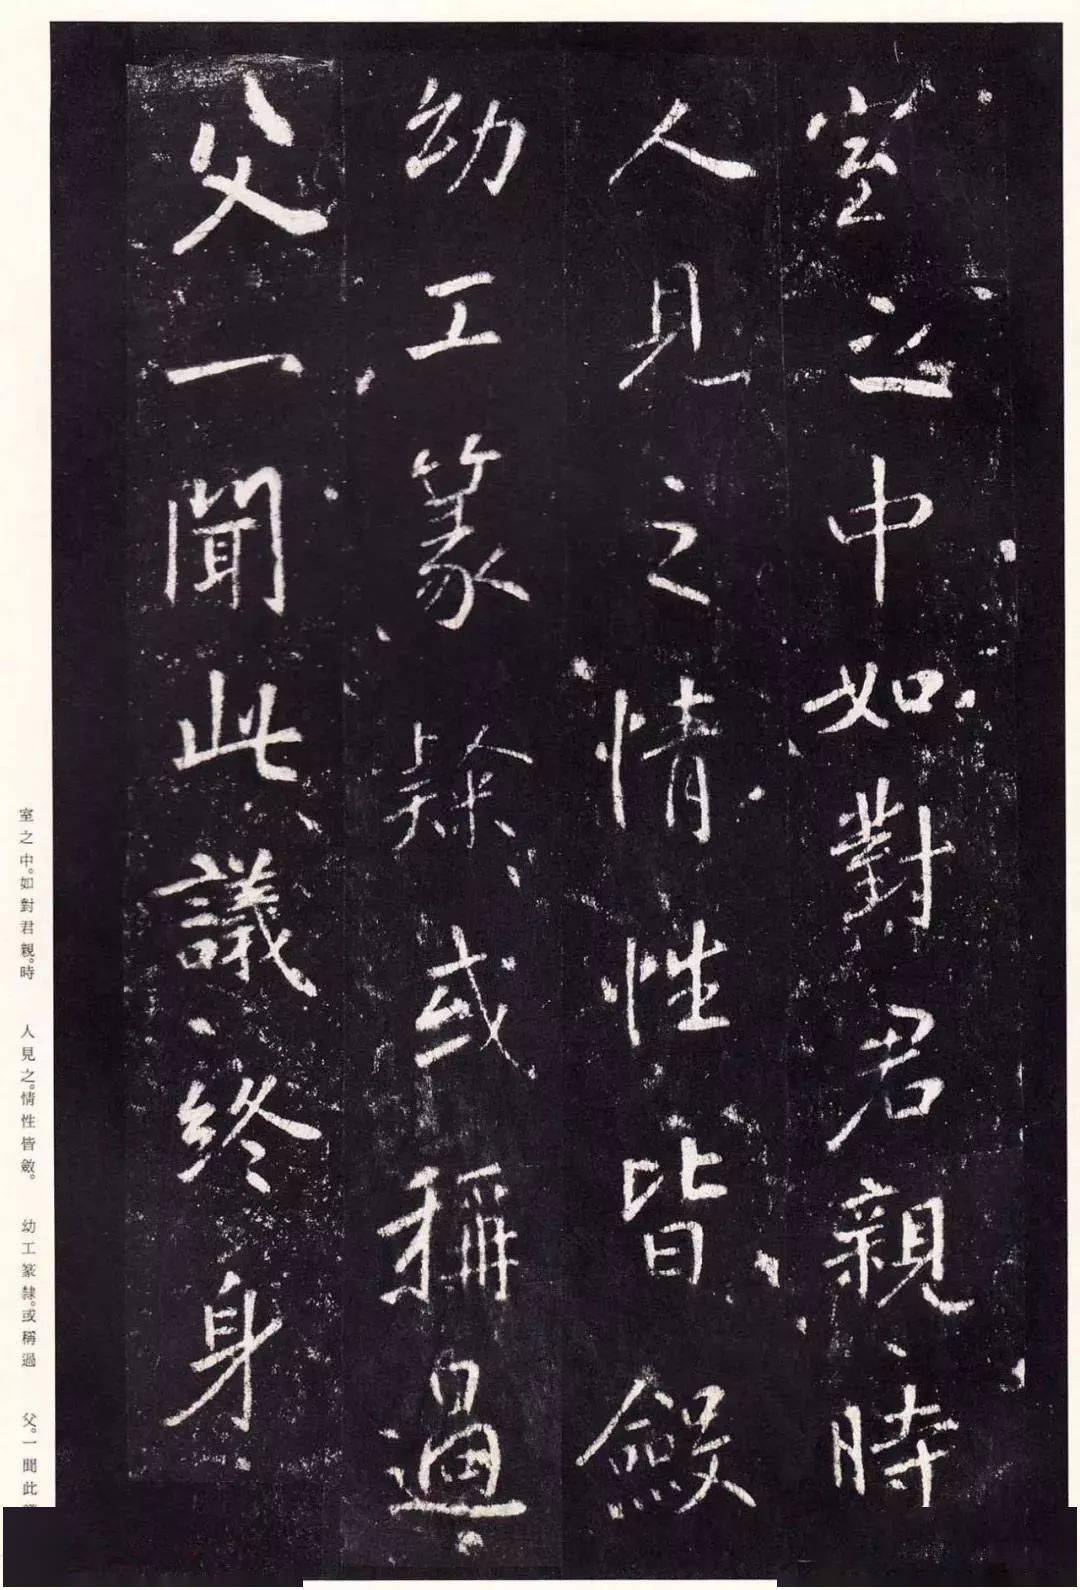 室之中如對君親時
人見之情性皆斂
幼工篆隸或稱過
父一聞此議終身
室之中。如對君親。時
人見之。情性皆斂。
幼工篆隸。或稱過
父。一聞此